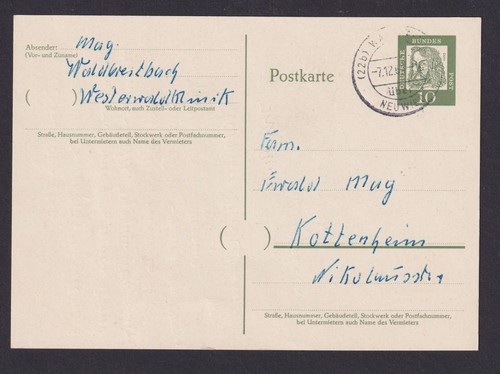 Absender:
(Vor- und Zuname)
May.
Waldbreitbach
( ) Westerwaldklinik
Wohnort, auch Zustell- oder Leitpostamt
Straße, Hausnummer, Gebäudeteil, Stockwerk oder Postfachnummer,
bei Untermietern auch Name des Vermieters
Postkarte
DEUTSCHE BUNDES POST
10
(22b)
-7.12.
NEUW
Fam.
Ewald May
( ) Kottenheim
Nikolausstr
Straße, Hausnummer, Gebäudeteil, Stockwerk oder Postfachnummer,
bei Untermietern auch Name des Vermieters